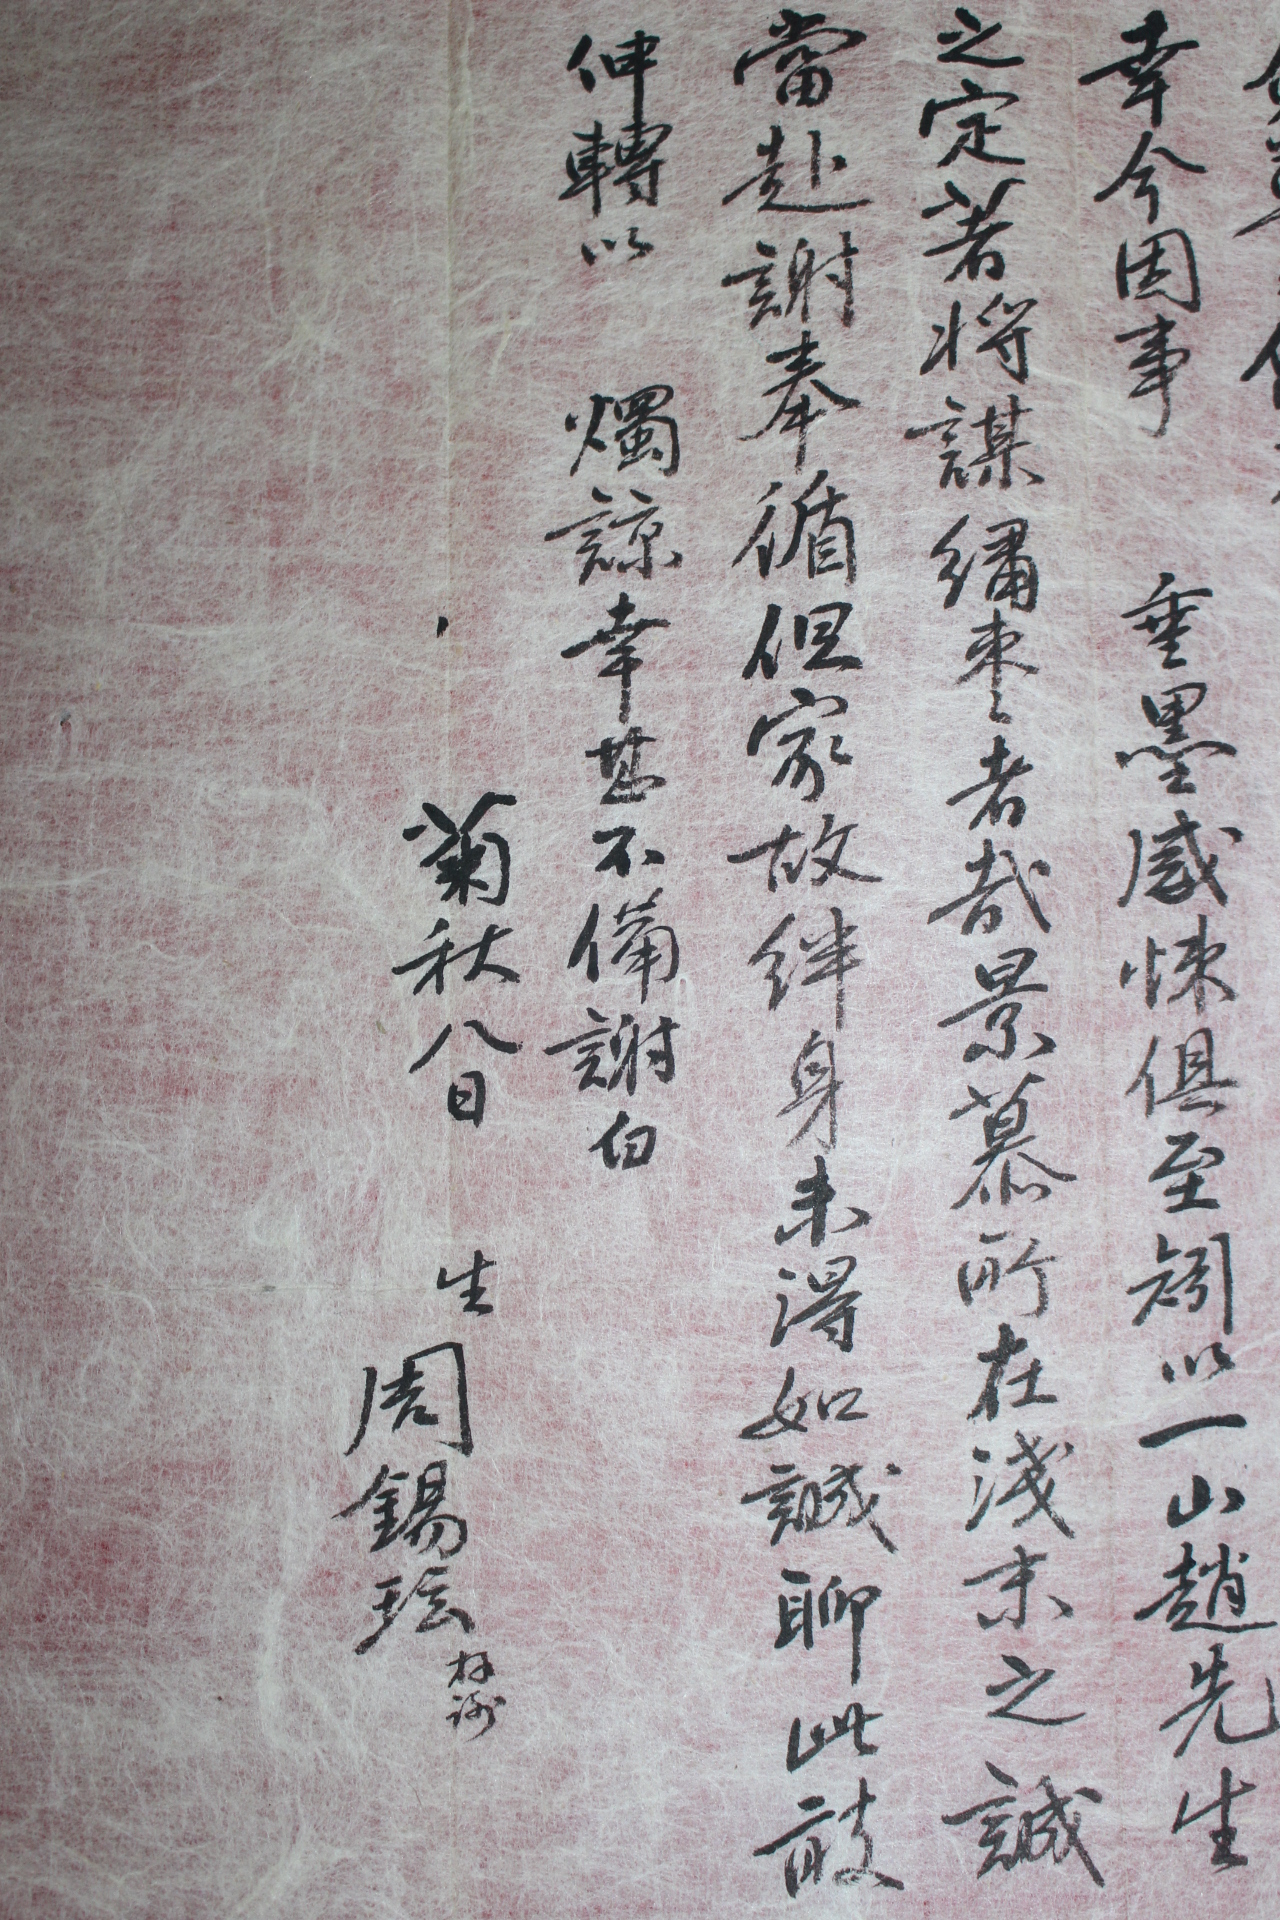 幸今因事 垂墨感悚俱至矧以一山趙先生
之定著將謀繡棗者哉景慕所在淺末之誠
當赴謝奉循但家故絆身未得如誠聊此敼
伸轉以 燭諒幸甚不備謝白
菊秋八日 生
周錫玹 拜謝